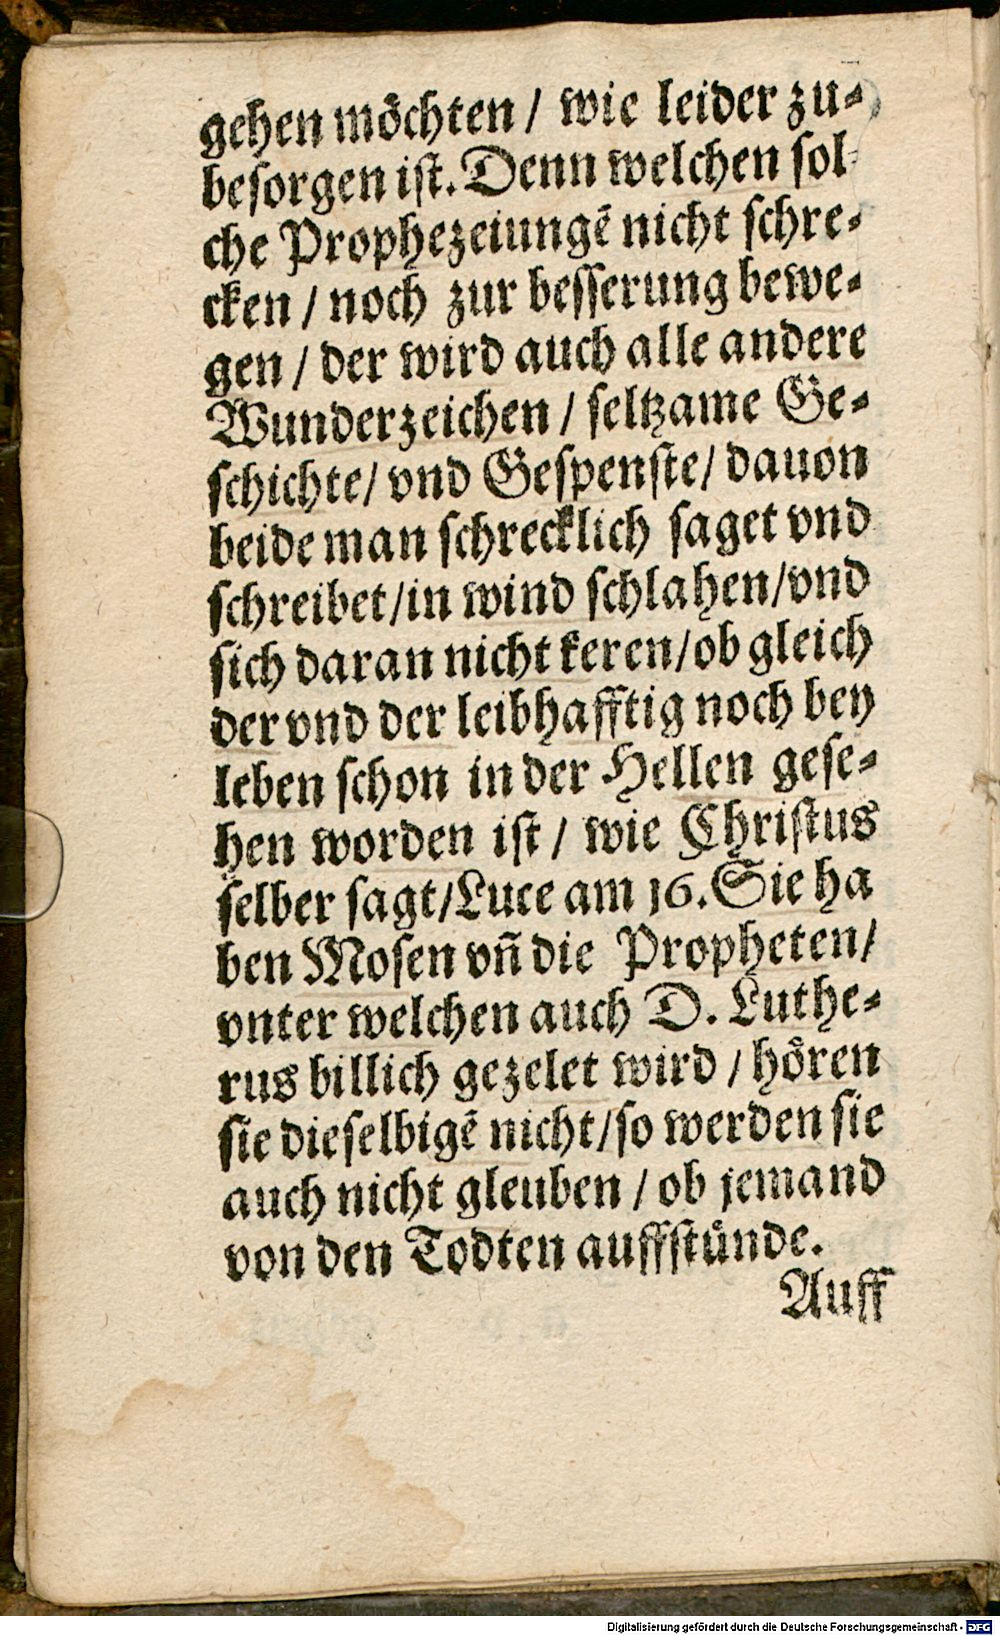 gehen möchten / wie leider zu⸗
besorgen ist. Denn welchen sol⸗
che Prophezeiungē nicht schre⸗
cken / noch zur besserung bewe⸗
gen / der wird auch alle andere
Wunderzeichen / seltzame Ge⸗
schichte / vnd Gespenste / dauon
beide man schrecklich saget vnd
schreibet / in wind schlahen / vnd
sich daran nicht keren / ob gleich
der vnd der leibhafftig noch bey
leben schon in der Hellen gese⸗
hen worden ist / wie Christus
selber sagt / Luce am 16. Sie ha
ben Mosen vñ die Propheten /
vnter welchen auch D. Luthe⸗
rus billich gezelet wird / hören
sie dieselbigē nicht / so werden sie
auch nicht gleuben / ob jemand
von den Todten auffstünde.
Auff
Digitalisierung gefördert durch die Deutsche Forschungsgemeinschaft - DFG